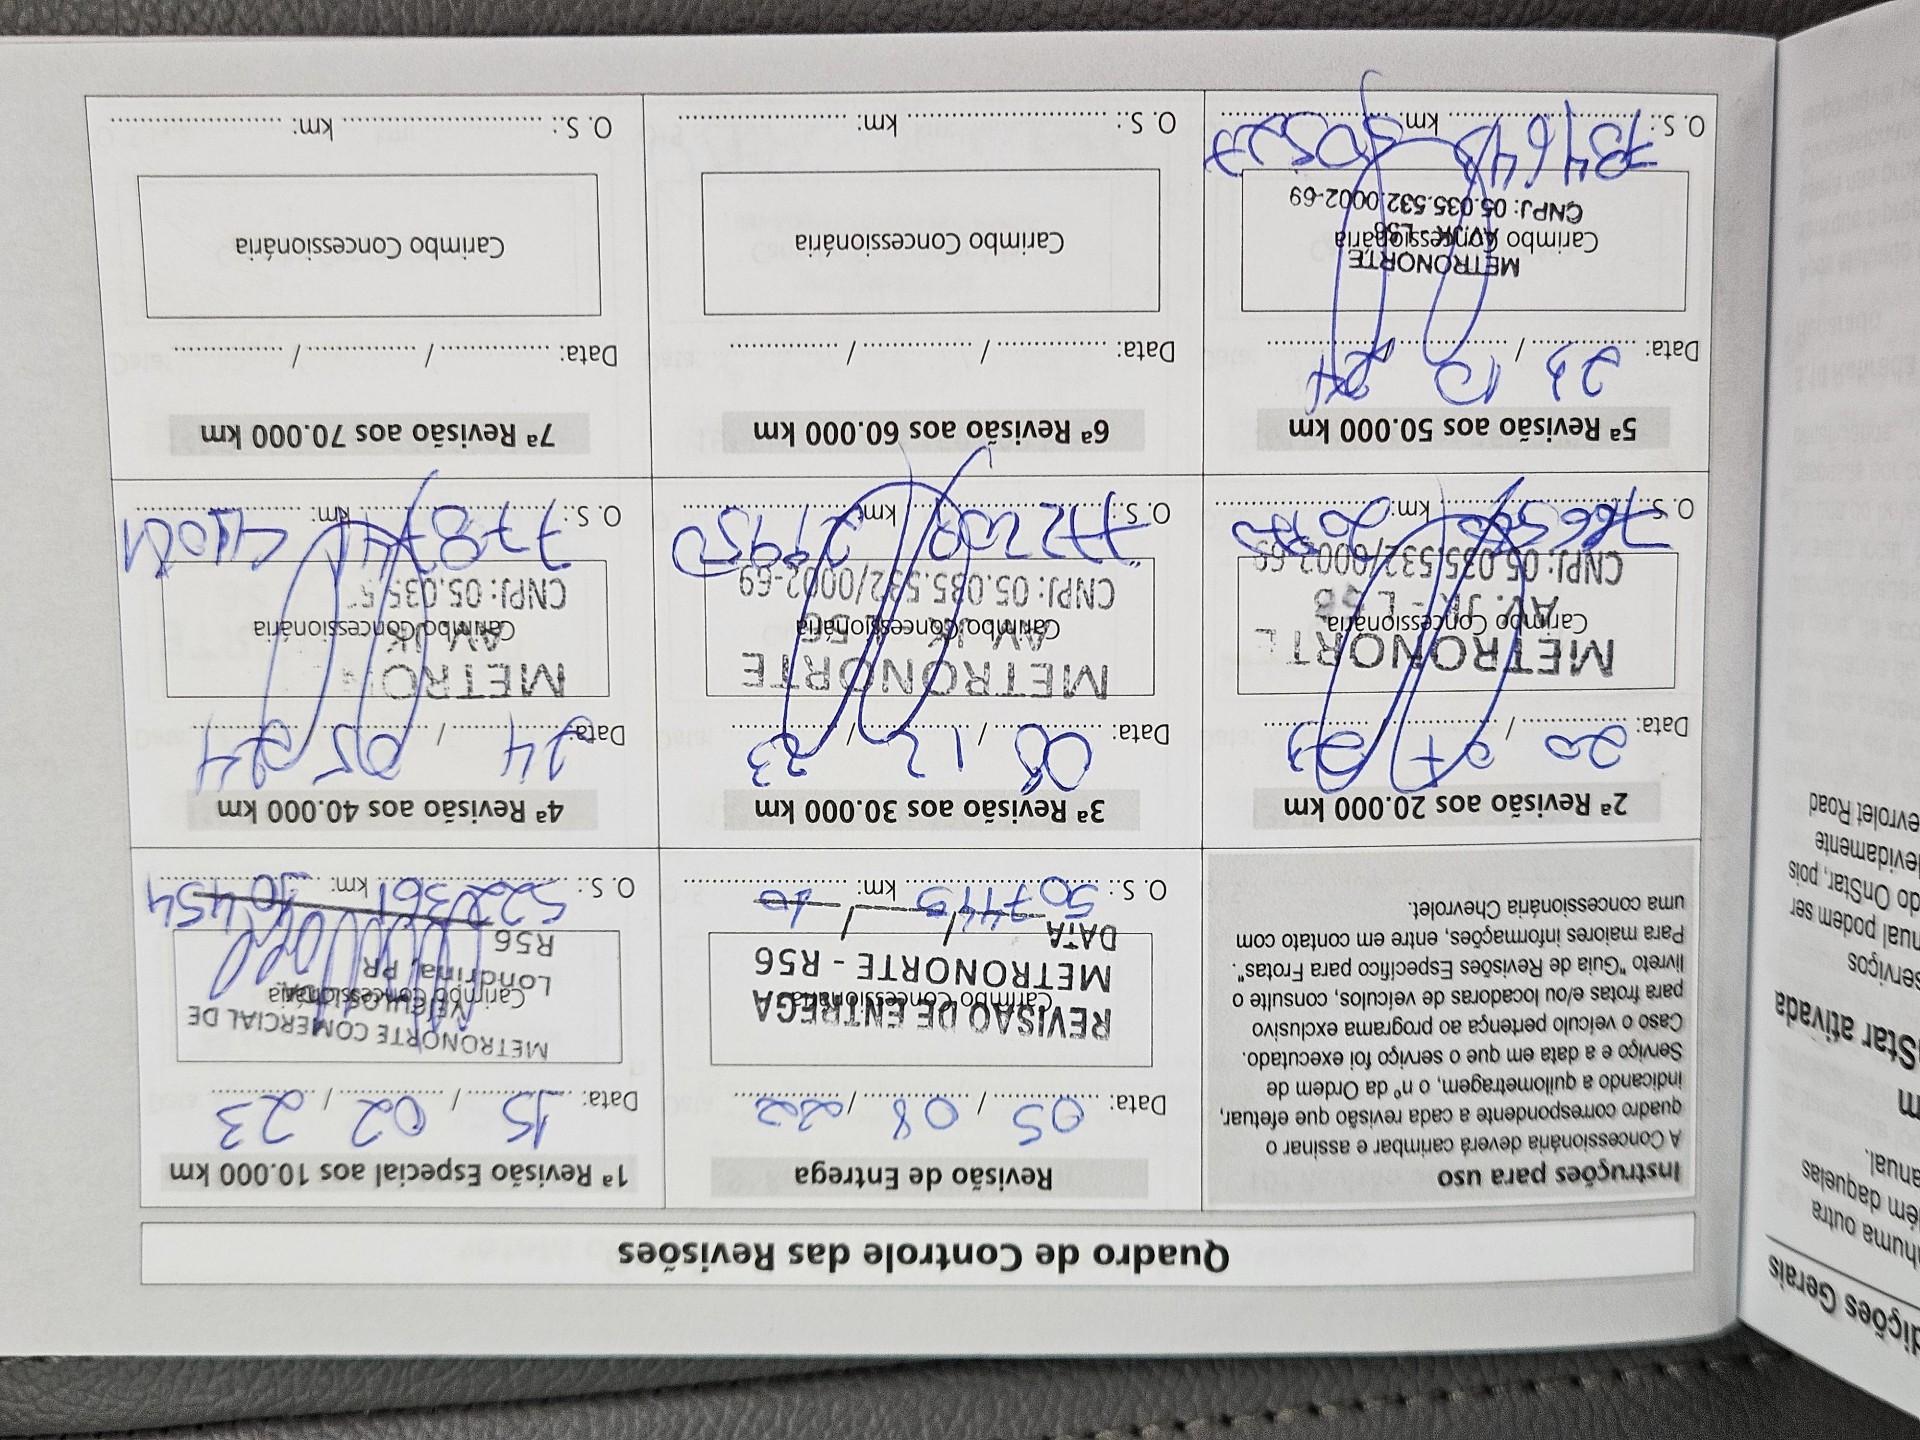 Quadro de Controle das Revisões
Instruções para uso
A Concessionária deverá carimbar e assinar o
quadro correspondente a cada revisão que efetuar,
indicando a quilometragem, o nº da Ordem de
Serviço e a data em que o serviço foi executado.
Caso o veículo pertença ao programa exclusivo
para frotas e/ou locadoras de veículos, consulte o
livreto "Guia de Revisões Específico para Frotas".
Para maiores informações, entre em contato com
uma concessionária Chevrolet.
Revisão de Entrega
Data: 05 / 08 / 22
REVISAO DE ENTREGA
Carimbo Concessionária
METRONORTE - R56
DATA
O. S.: 507449 km: 10
1ª Revisão Especial aos 10.000 km
Data: 15 / 02 / 23
METRONORTE COMERCIAL DE
VEICULOS LTDA
Carimbo Concessionária
Londrina, PR
R56
O. S.: 522361 km: 10454
2ª Revisão aos 20.000 km
Data: 20 / 07 / 23
METRONORTE
Carimbo Concessionária
AV. JK - L 56
CNPJ: 05.035.532/0002-69
O. S.: km:
3ª Revisão aos 30.000 km
Data: 08 / 12 / 23
METRONORTE
Carimbo Concessionária
AV JK 56
CNPJ: 05.035.532/0002-69
O. S.: km: 29950
4ª Revisão aos 40.000 km
Data: 24 / 05 / 24
METRON
Carimbo Concessionária
AV JK
CNPJ: 05.035.5
O. S.: km:
5ª Revisão aos 50.000 km
Data: 23 / 12 / 24
METRONORTE
Carimbo Concessionária
AV.JK - L56
CNPJ: 05.035.532.0002-69
O. S.: km:
6ª Revisão aos 60.000 km
Data: / /
Carimbo Concessionária
O. S.: km:
7ª Revisão aos 70.000 km
Data: / /
Carimbo Concessionária
O. S.: km:
dições Gerais
nhuma outra
ém daquelas
anual.
m
Star ativada
serviços
nual podem ser
do OnStar, pois
devidamente
evrolet Road